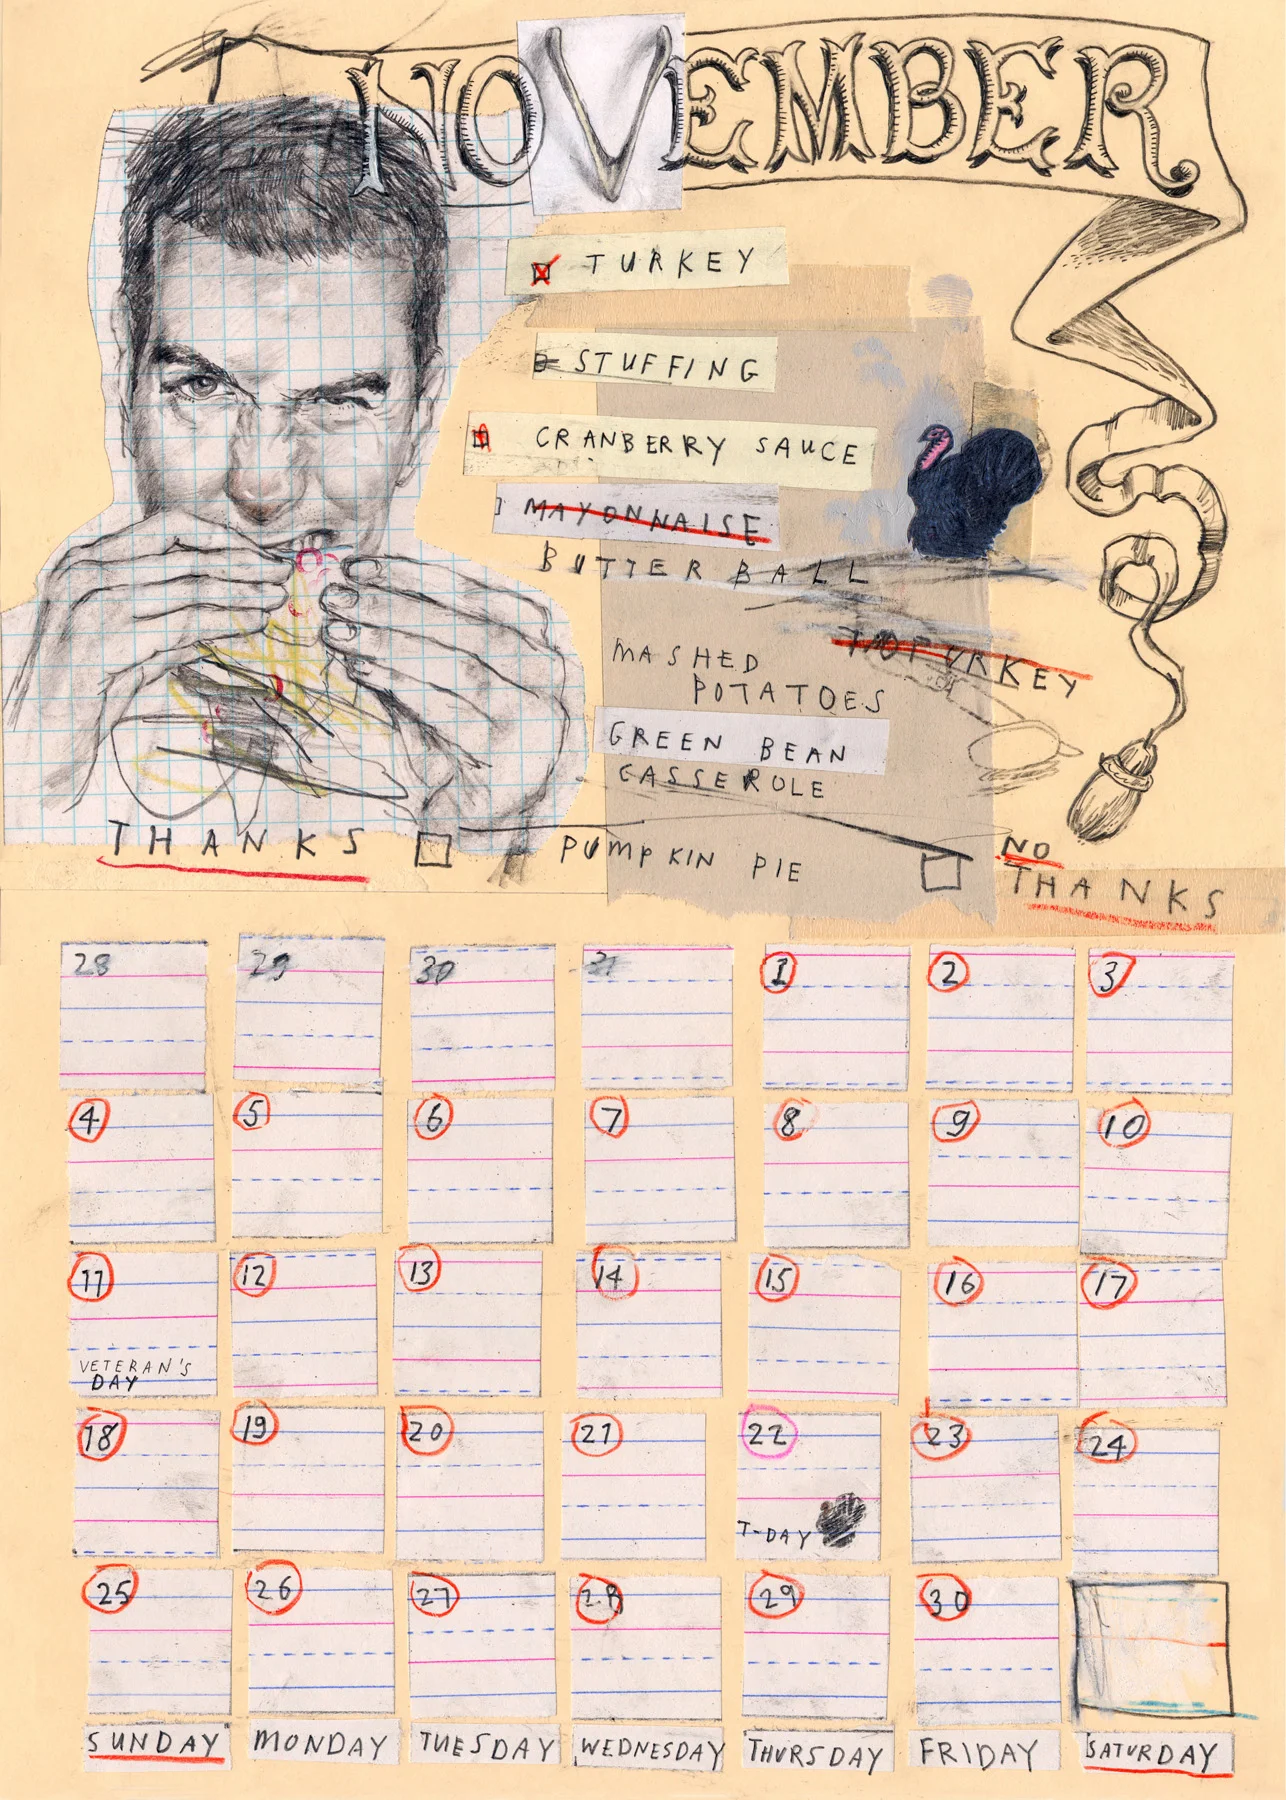 NOVEMBER
TURKEY
STUFFING
CRANBERRY SAUCE
MAYONNAISE
BUTTER BALL
TOFURKEY
MASHED
POTATOES
GREEN BEAN
CASSEROLE
THANKS
PUMPKIN PIE
NO
THANKS
28 29 30 31 1 2 3
4 5 6 7 8 9 10
11 12 13 14 15 16 17
VETERAN'S
DAY
18 19 20 21 22 23 24
T-DAY
25 26 27 28 29 30
SUNDAY MONDAY TUESDAY WEDNESDAY THURSDAY FRIDAY SATURDAY